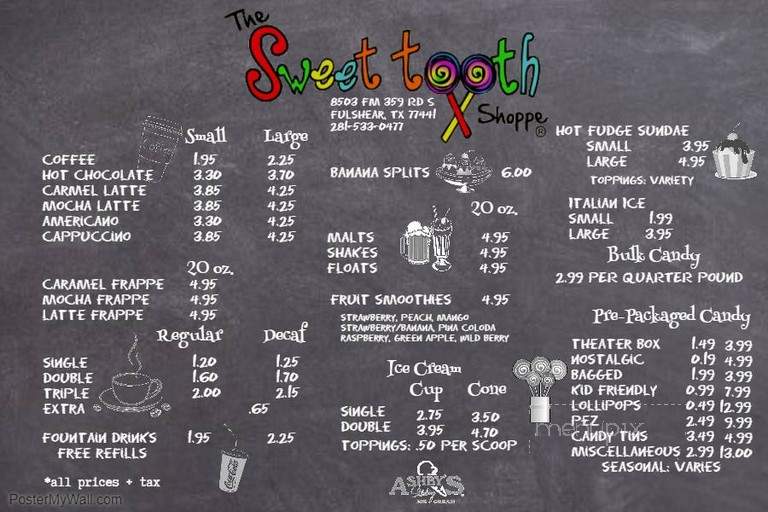 The
Sweet tooth
Shoppe®
8503 FM 359 RD S
FULSHEAR, TX 77441
281-533-0477
Small Large
COFFEE 1.95 2.25
HOT CHOCOLATE 3.30 3.70
CARMEL LATTE 3.85 4.25
MOCHA LATTE 3.85 4.25
AMERICANO 3.30 4.25
CAPPUCCINO 3.85 4.25
20 oz.
CARAMEL FRAPPE 4.95
MOCHA FRAPPE 4.95
LATTE FRAPPE 4.95
Regular Decaf
SINGLE 1.20 1.25
DOUBLE 1.60 1.70
TRIPLE 2.00 2.15
EXTRA .65
FOUNTAIN DRINKS 1.95 2.25
FREE REFILLS
Coca-Cola
*all prices + tax
PosterMyWall.com
BANANA SPLITS 6.00
20 oz.
MALTS 4.95
SHAKES 4.95
FLOATS 4.95
FRUIT SMOOTHIES 4.95
STRAWBERRY, PEACH, MANGO
STRAWBERRY/BANANA, PINA COLODA
RASPBERRY, GREEN APPLE, WILD BERRY
Ice Cream
Cup Cone
SINGLE 2.75 3.50
DOUBLE 3.95 4.70
TOPPINGS: .50 PER SCOOP
ASHBY'S
HOT FUDGE SUNDAE
SMALL 3.95
LARGE 4.95
TOPPINGS: VARIETY
ITALIAN ICE
SMALL 1.99
LARGE 3.95
Bulk Candy
2.99 PER QUARTER POUND
Pre-Packaged Candy
THEATER BOX 1.49 3.99
NOSTALGIC 0.19 4.99
BAGGED 1.99 3.99
KID FRIENDLY 0.99 7.99
LOLLIPOPS 0.49 12.99
PEZ 2.49 9.99
CANDY TINS 3.49 4.99
MISCELLANEOUS 2.99 13.00
SEASONAL: VARIES
menupix